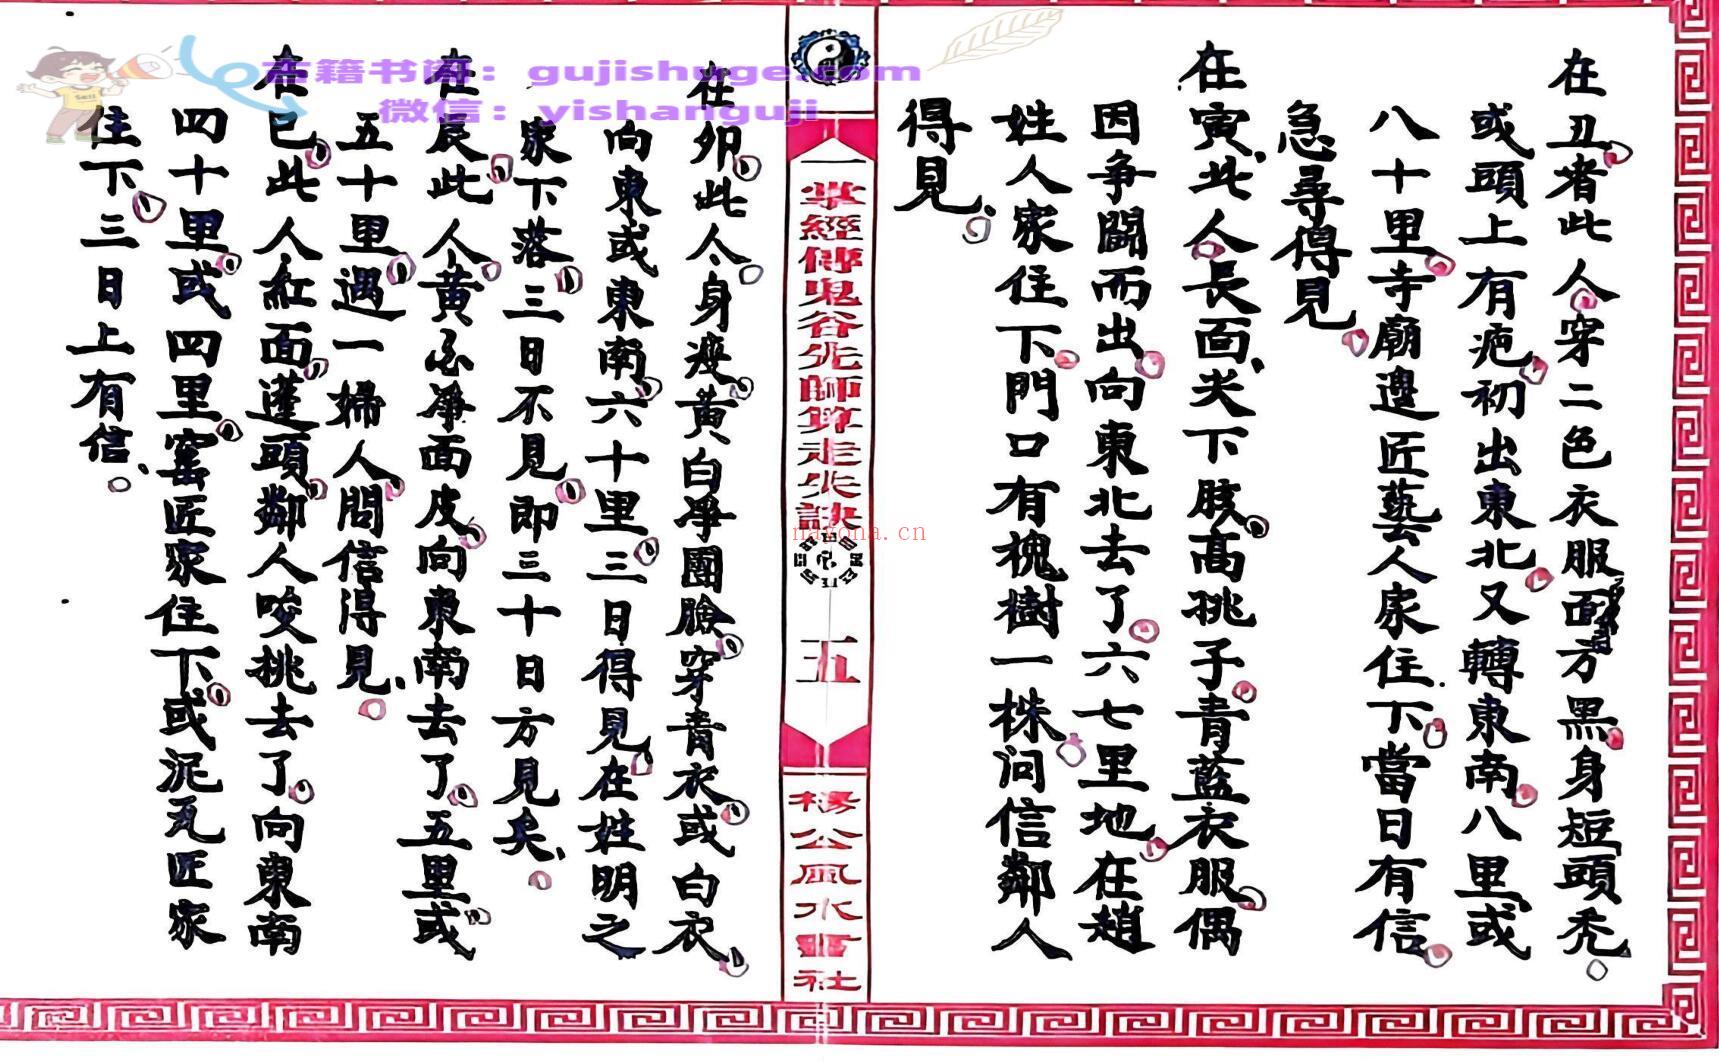 在丑者此人穿二色衣服面方黑身短頭禿
或頭上有疤初出東北又轉東南八里或
八十里寺廟邊匠藝人家住下當日有信
急尋得見
在寅此人長面尖下胲高挑子青藍衣服偶
因争鬪而出向東北去了六七里地在趙
姓人家住下門口有槐樹一株问信鄰人
得見
一掌經傳鬼谷先師算走失訣
五
楊公風水書社
在卯此人身瘦黃白净團臉穿青衣或白衣
向東或東南六十里三日得見在姓明之
家下落三日不見即三十日方見矣
在辰此人黃不净面皮向東南去了五里或
五十里遇一婦人問信得見
在巳此人紅面蓬頭鄰人唆挑去了向東南
四十里或四里窰匠家住下或泥瓦匠家
住下三日上有信
古籍书阁：gujishuge.com
微信：yishanguji
nayona.cn